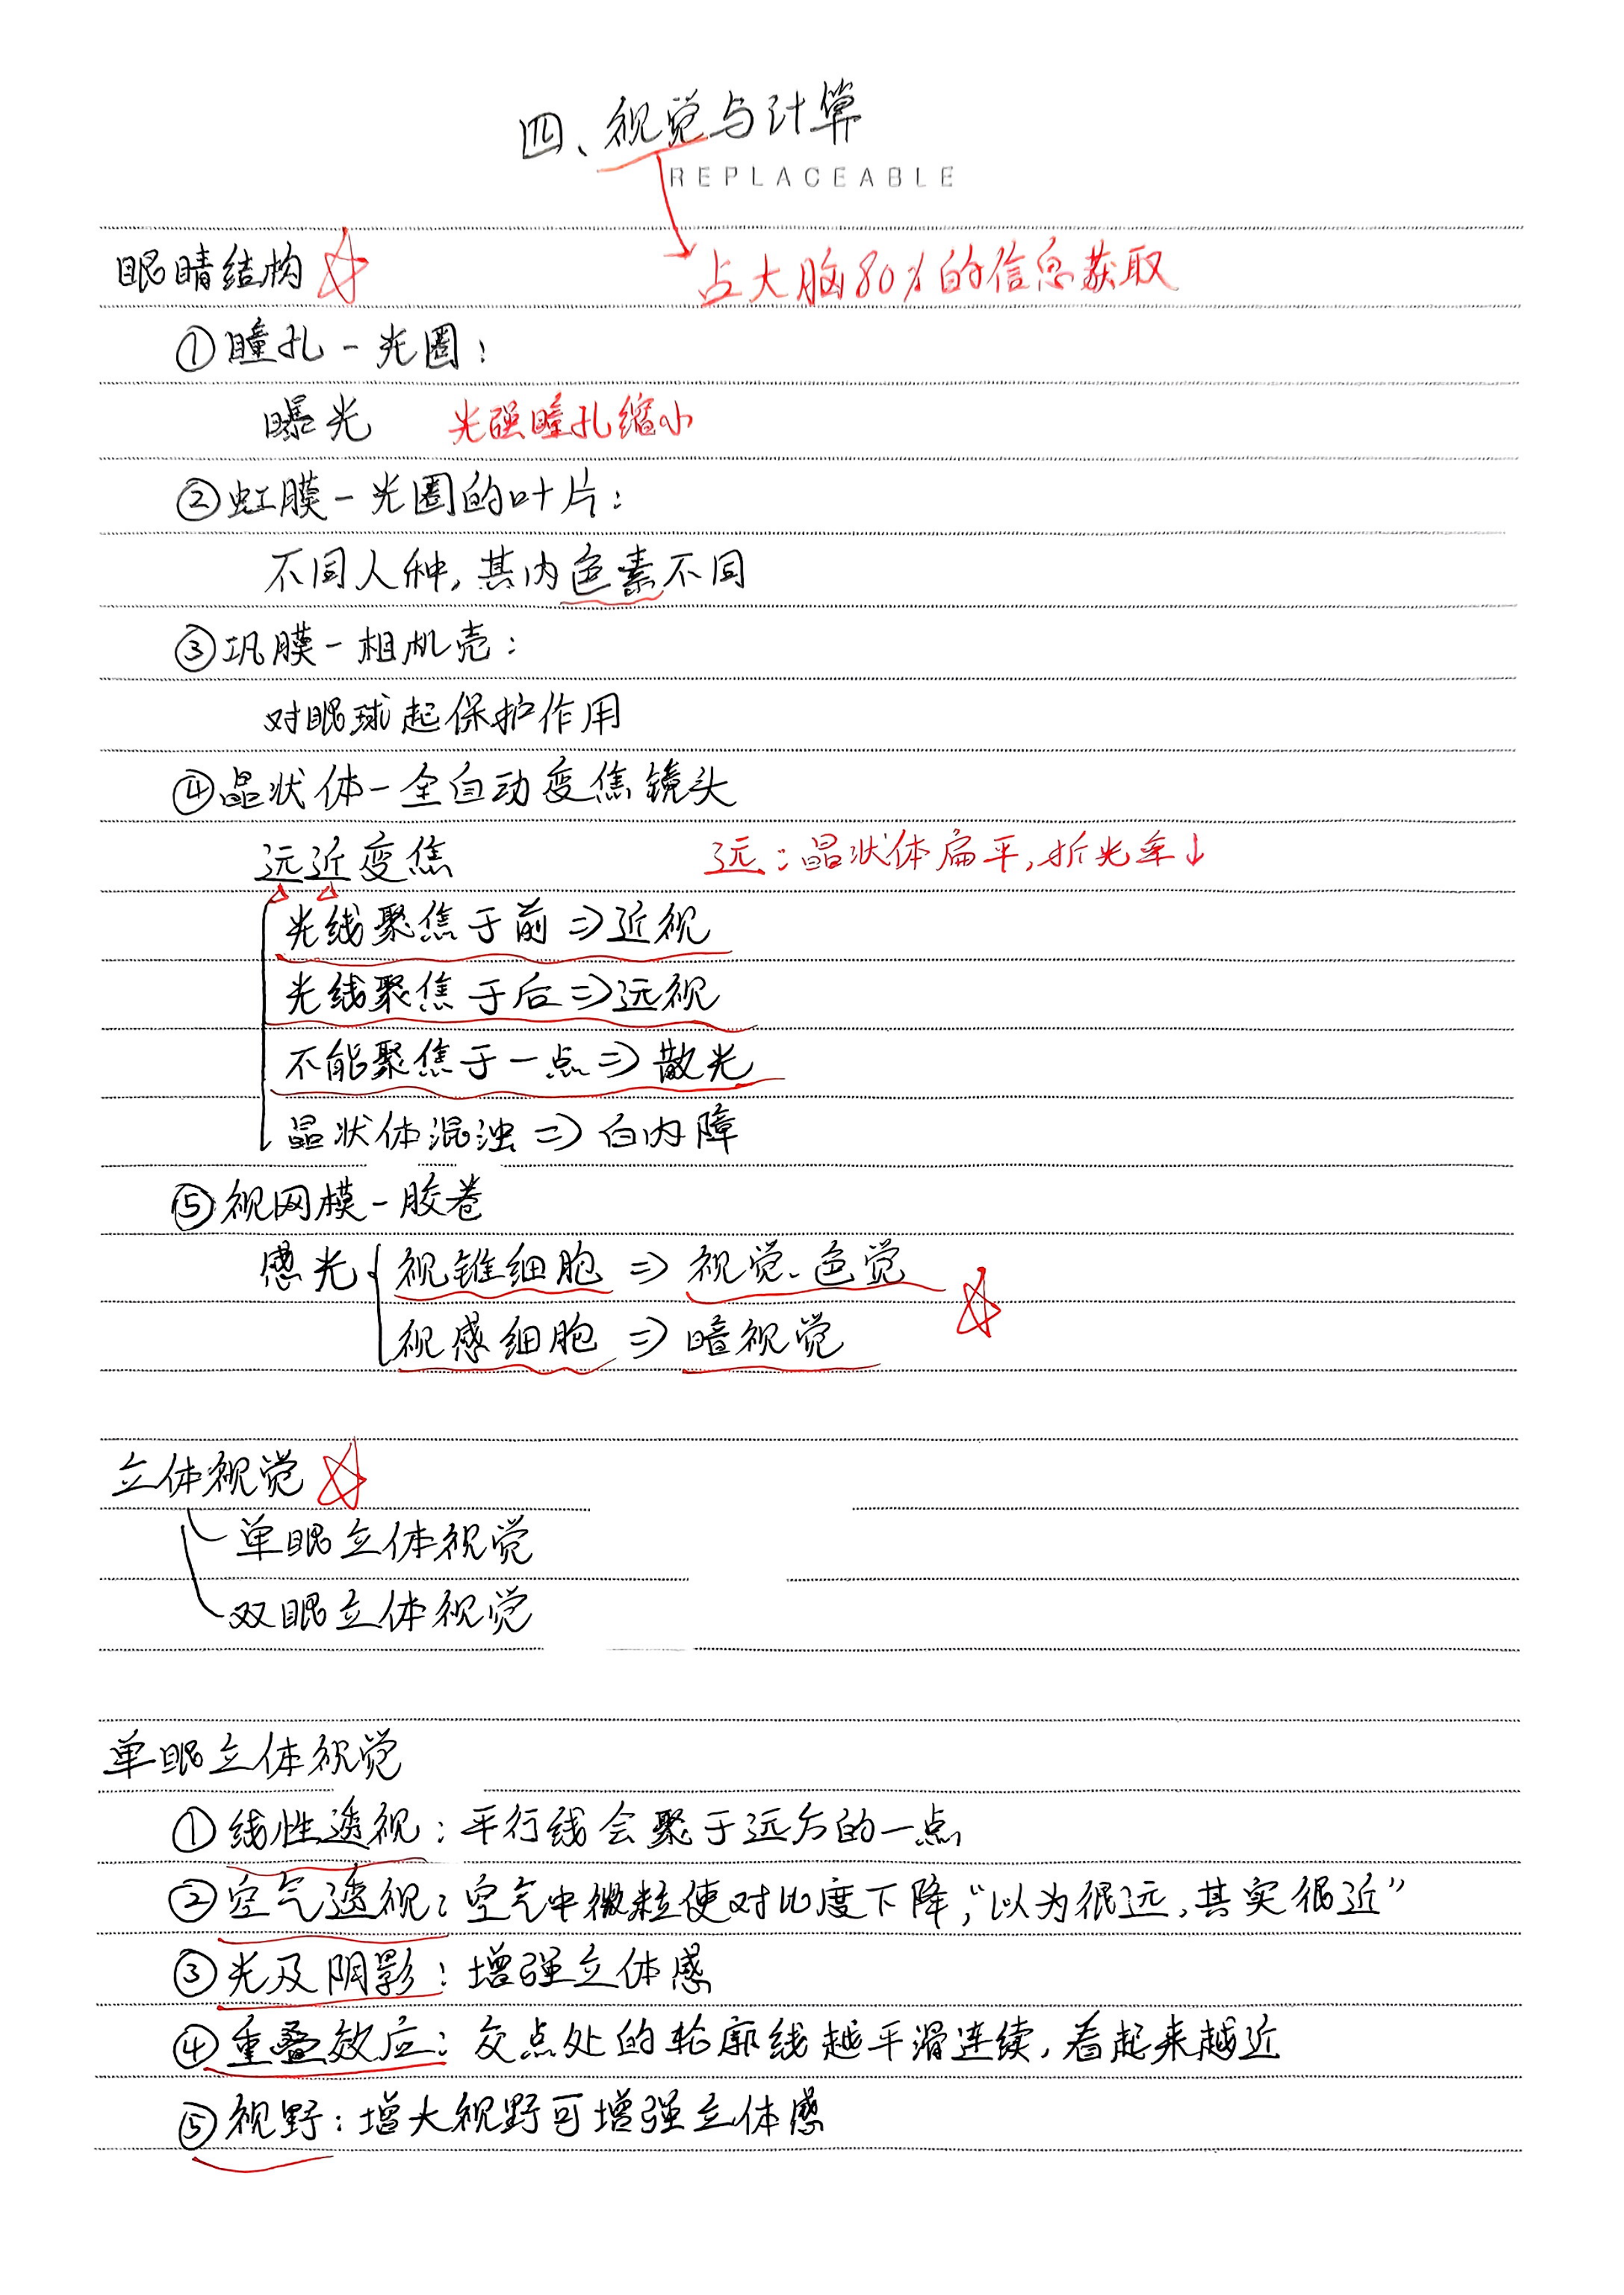 四、视觉与计算
REPLACEABLE
眼睛结构
占大脑80%的信息获取
①瞳孔-光圈：
曝光 光强瞳孔缩小
②虹膜-光圈的叶片：
不同人种，其内色素不同
③巩膜-相机壳：
对眼球起保护作用
④晶状体-全自动变焦镜头
远近变焦 远：晶状体扁平，折光率↓
光线聚焦于前⇒近视
光线聚焦于后⇒远视
不能聚焦于一点⇒散光
晶状体混浊⇒白内障
⑤视网模-胶卷
感光 视锥细胞⇒视觉、色觉
视感细胞⇒暗视觉
立体视觉
单眼立体视觉
双眼立体视觉
单眼立体视觉
①线性透视：平行线会聚于远方的一点
②空气透视：空气中微粒使对比度下降，“以为很远，其实很近”
③光及阴影：增强立体感
④重叠效应：交点处的轮廓线越平滑连续，看起来越近
⑤视野：增大视野可增强立体感